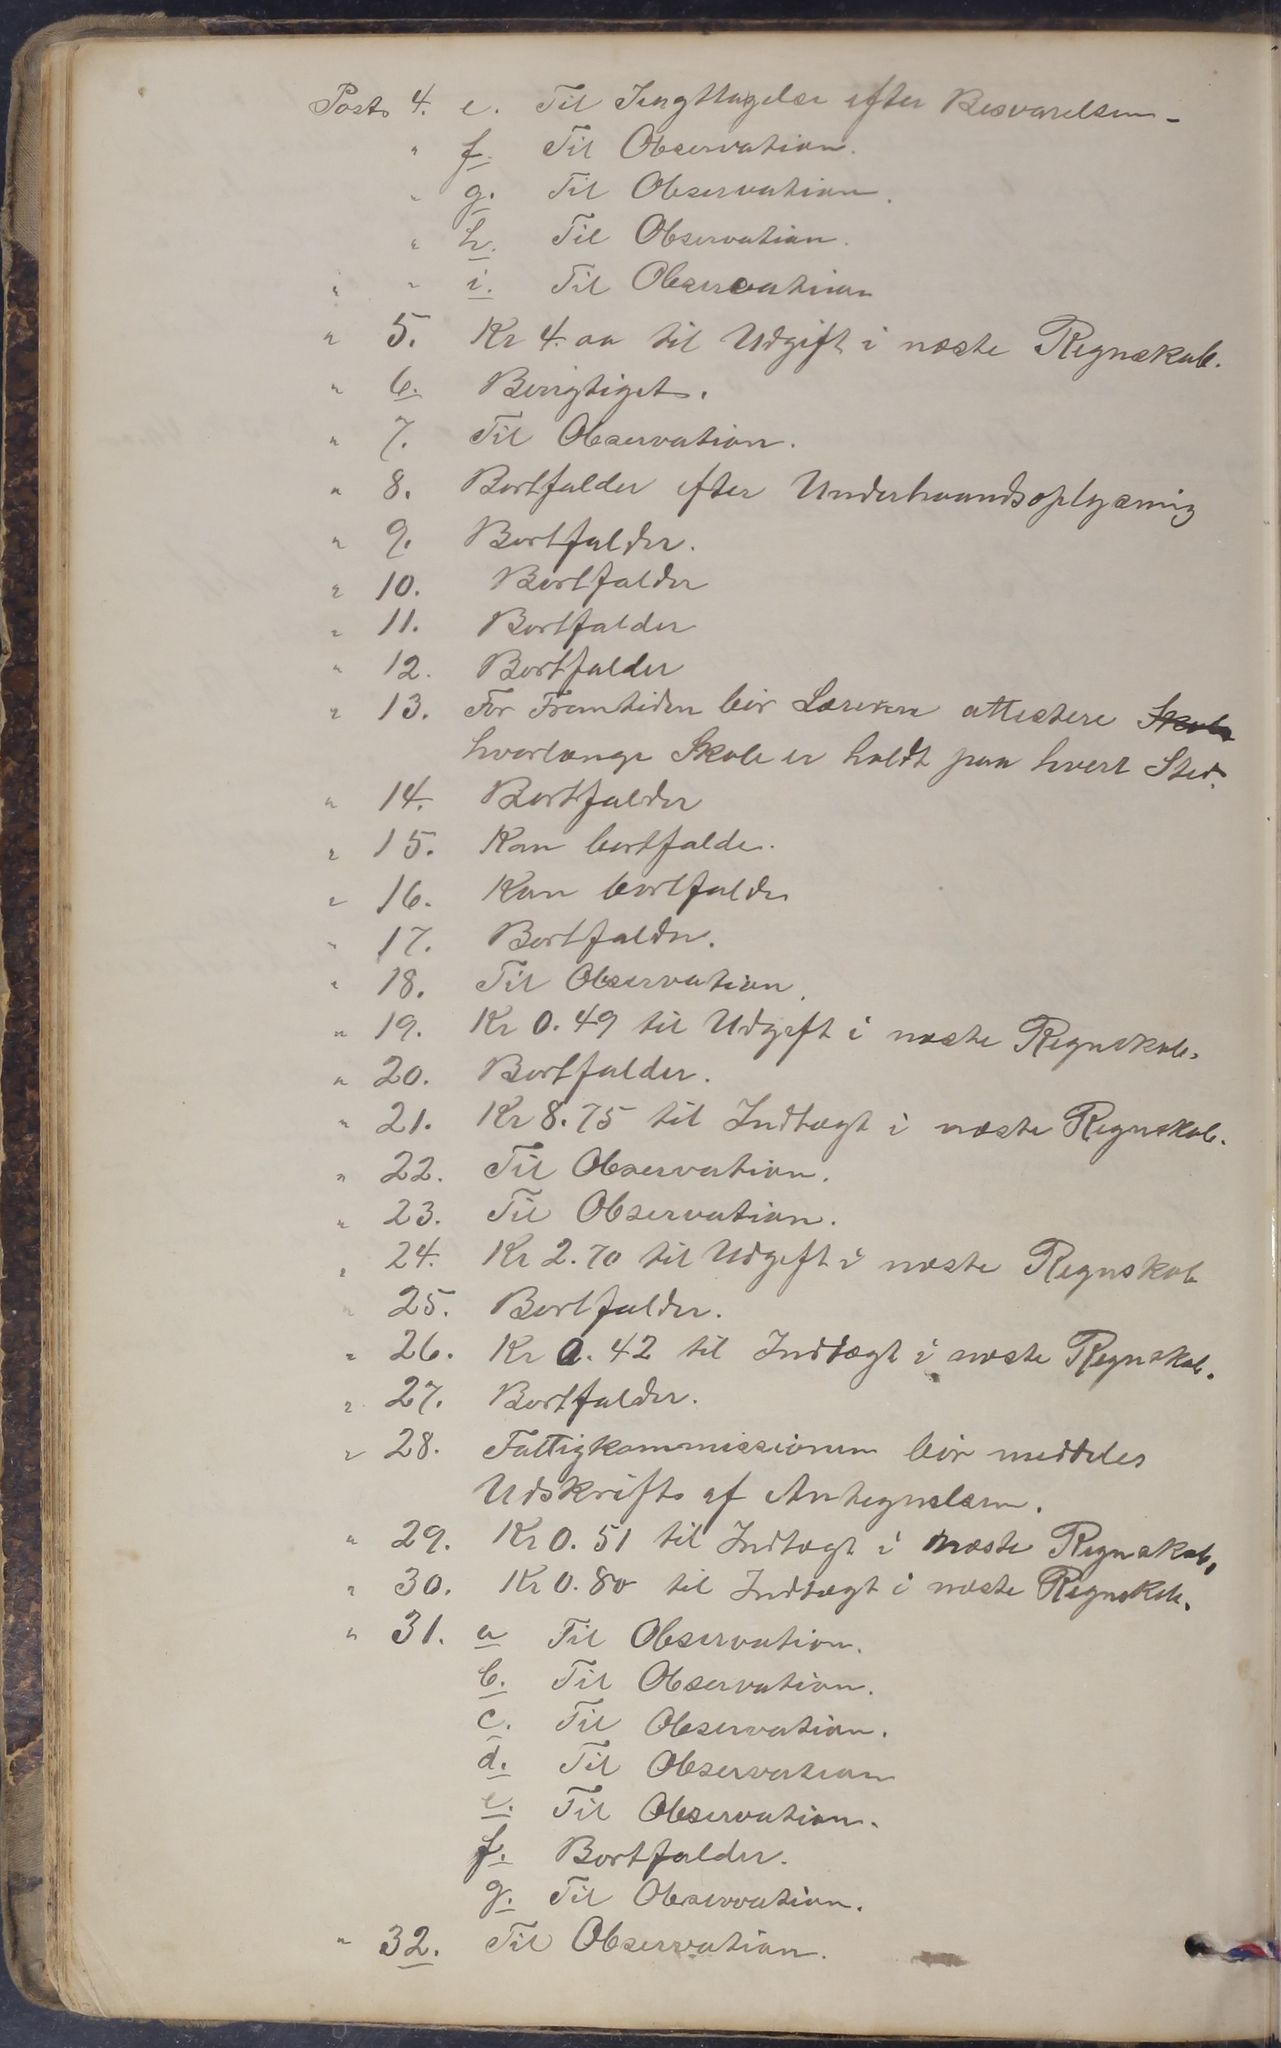 Post 4. e. Til Iagttagelse efter Besvarelsen -
" f. Til Observation.
" g. Til Observation.
" h. Til Observation.
" " i. Til Observation
" 5. Kr 4.00 til Udgift i næste Regnskab.
" 6. Berigtiget.
" 7. Til Observation.
" 8. Bortfalder efter Underhaandsoplysning
" 9. Bortfalder.
" 10. Bortfalder
" 11. Bortfalder
" 12. Bortfalder
" 13. For Fremtiden bør Læreren attestere Skole
hvorlænge Skole er holdt paa hvert Sted.
" 14. Bortfalder
" 15. Kan bortfalde.
" 16. Kan bortfalde
" 17. Bortfalder.
" 18. Til Observation.
" 19. Kr 0.49 til Udgift i næste Regnskab.
" 20. Bortfalder.
" 21. Kr 8.75 til Indtægt i næste Regnskab.
" 22. Til Observation.
" 23. Til Observation.
" 24. Kr 2.70 til Udgift i næste Regnskab
" 25. Bortfalder.
" 26. Kr 0.42 til Indtægt i næste Regnskab.
" 27. Bortfalder.
" 28. Fattigkommissionen bør meddeles
Udskrift af Antegnelsen.
" 29. Kr 0.51 til Indtægt i næste Regnskab.
" 30. Kr 0.80 til Indtægt i næste Regnskab.
" 31. a Til Observation.
b. Til Observation.
c. Til Observation.
d. Til Observation
e. Til Observation.
f. Bortfalder.
g. Til Observation.
" 32. Til Observation.